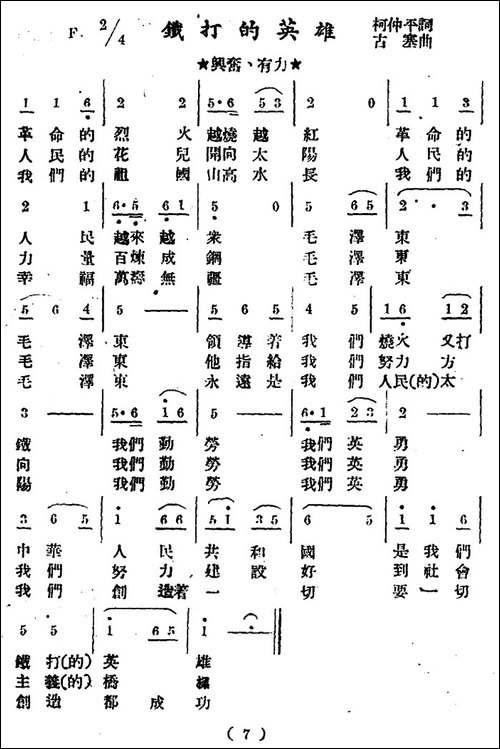 鐵打的英雄
F 2/4
柯仲平詞
古塞曲
★興奮、有力★
1 1 6 2 2 5·6 5 3 2 0 1 1 3
革命的烈火越燒越紅 革命的
人民的花兒開向太陽 人民的
我們的祖國山高水長 我們的
2 1 6·5 6 1 5 0 5 6 5 2·3
人民越來越眾 毛澤東
力量百煉成鋼 毛澤東
幸福萬壽無疆 毛澤東
5 6 4 5 — 5 6 5 4 5 1 6 1 2
毛澤東 領導着我們燒火又打
毛澤東 他指給我們努力方
毛澤東 永遠是我們人民(的)太
3 — 5·6 1 6 5 — 6·1 2 3 2 —
鐵 我們勤勞 我們英勇
向 我們勤勞 我們英勇
陽 我們勤勞 我們英勇
3 6 5 1 6 6 5 1 3 5 6 5 1 1 6
中華人民共和國 是我們
我們努力建設好 到社會
我們創造着一切 要一切
5 5 1 6 5 1 · —
鐵打(的)英雄
主義(的)橋樑
創造都成功
( 7 )